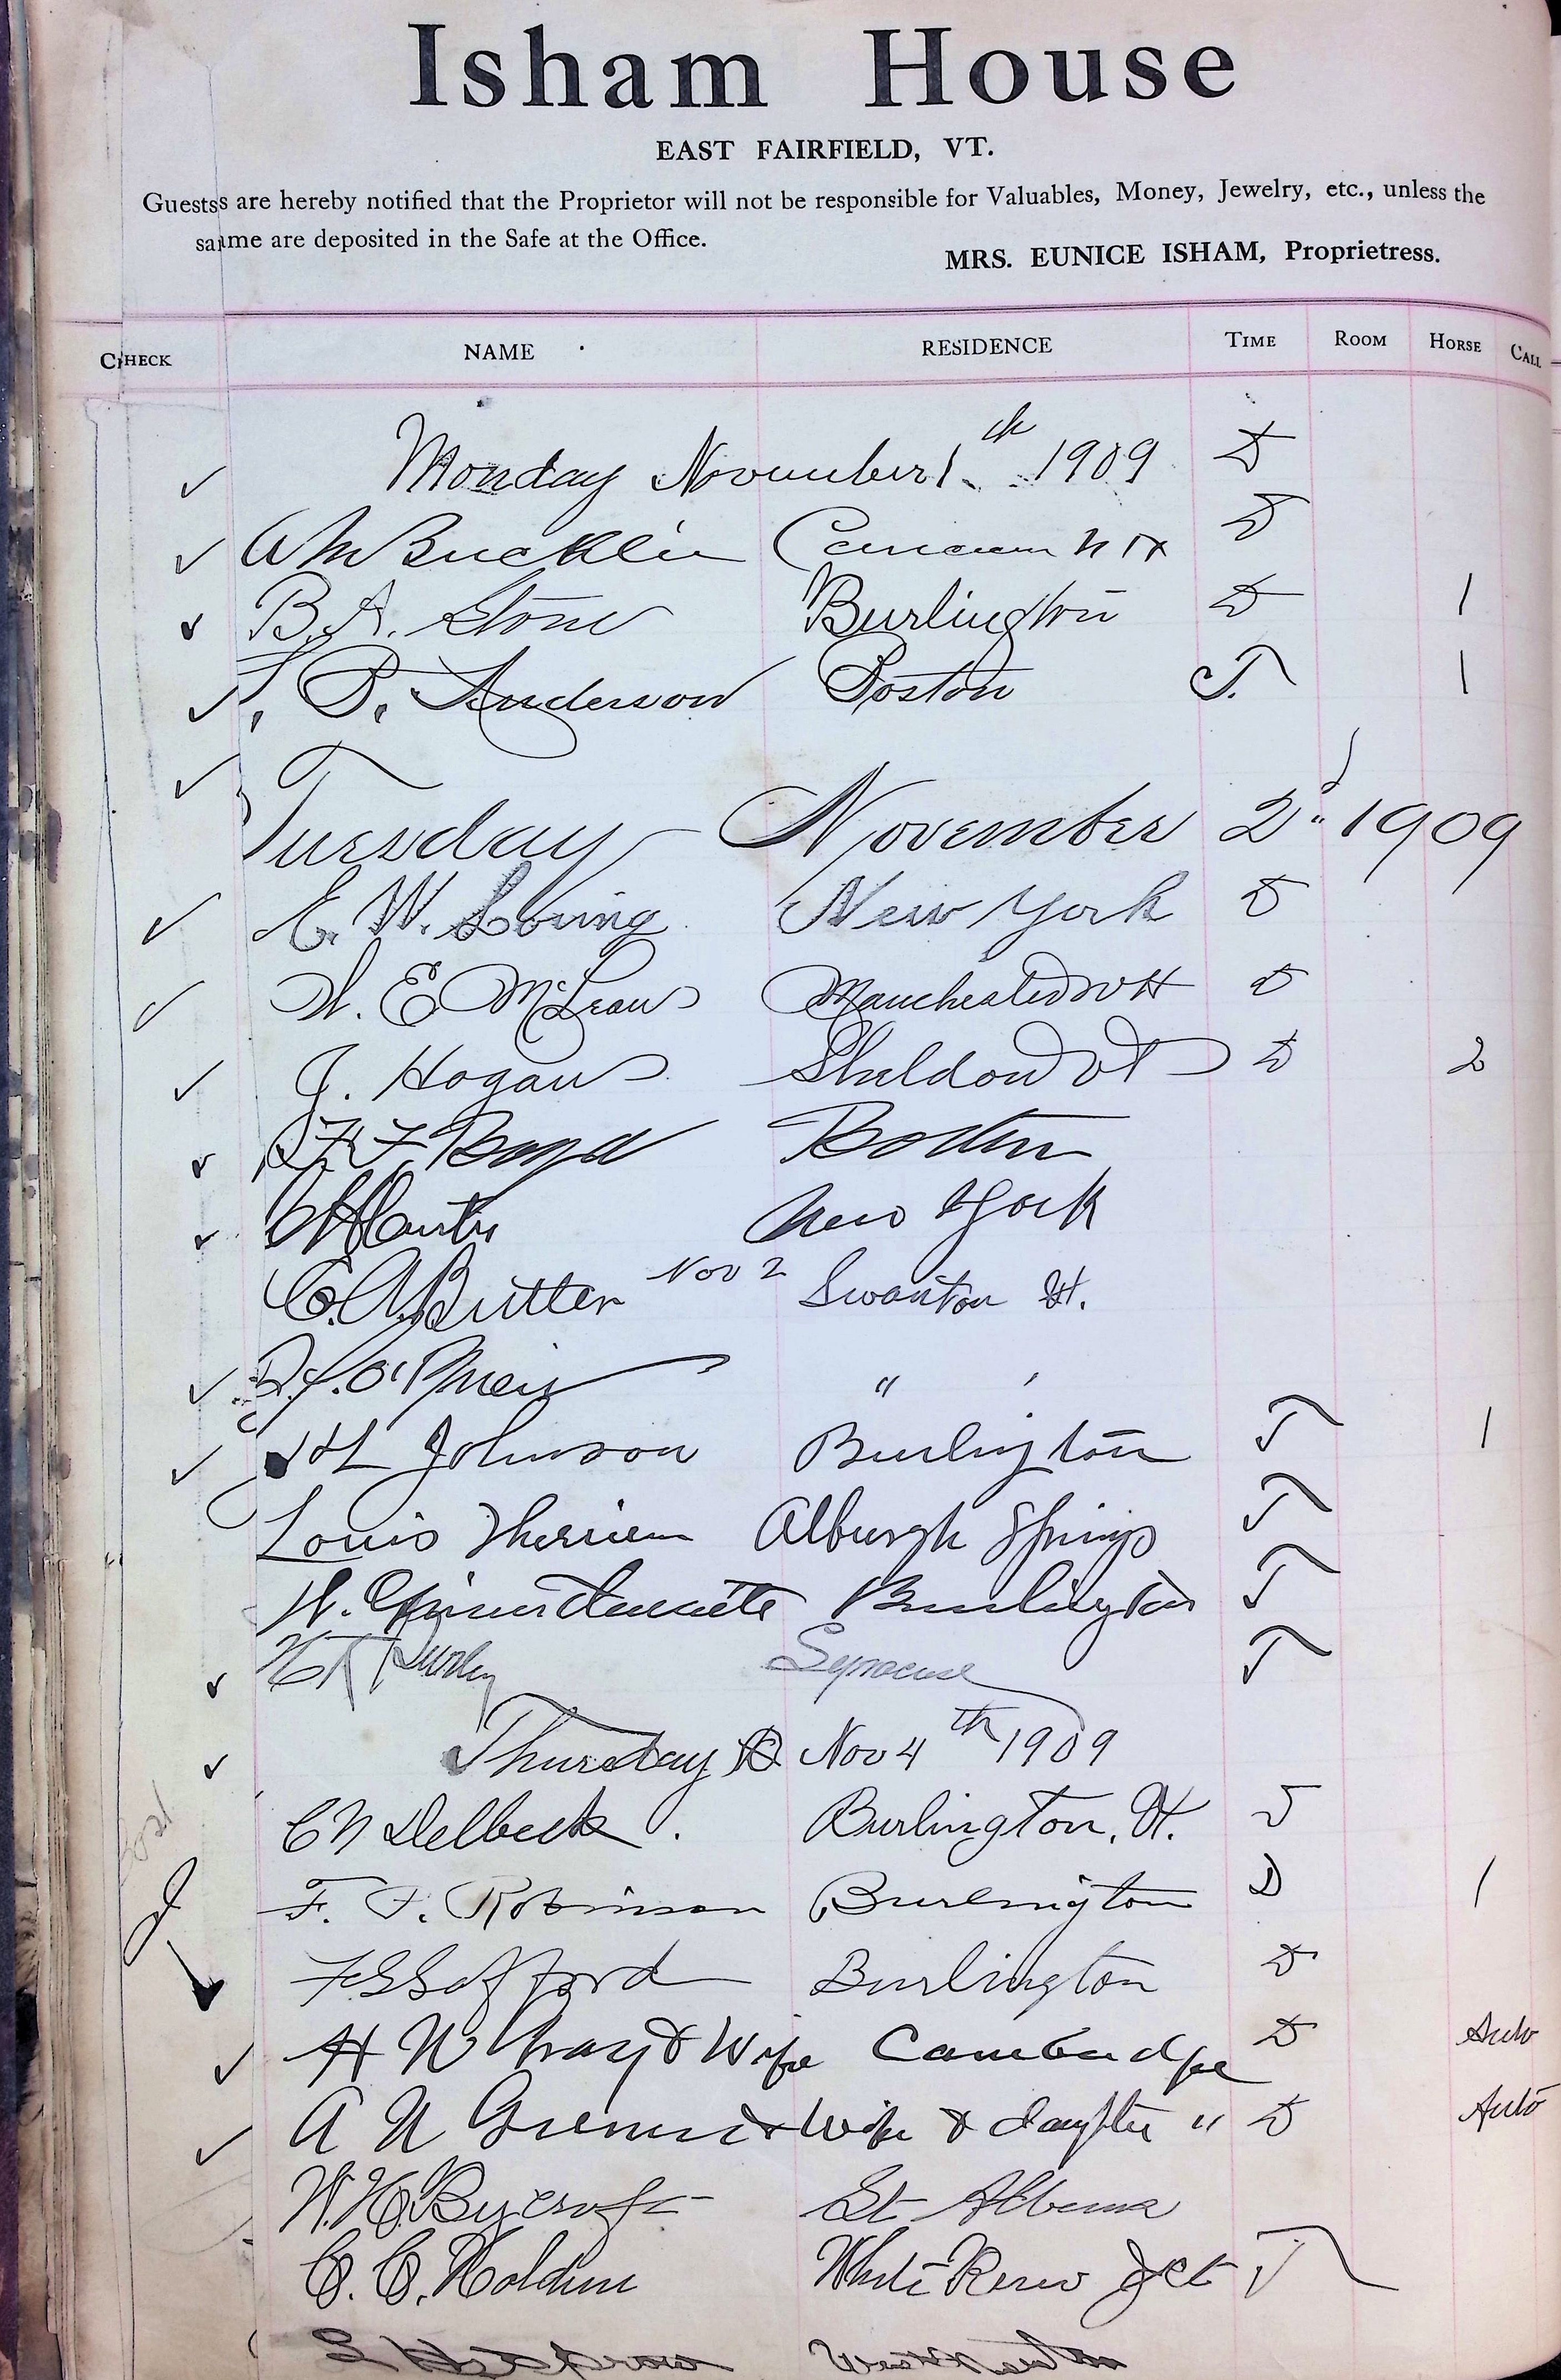 Isham House
EAST FAIRFIELD, VT.
Guests are hereby notified that the Proprietor will not be responsible for Valuables, Money, Jewelry, etc., unless the
same are deposited in the Safe at the Office.
MRS. EUNICE ISHAM, Proprietress.
CHECK NAME RESIDENCE TIME ROOM HORSE CALL
Monday November 1th 1909 D
W M Bucklin N H D
B. A. Stone Burlington D 1
P. Anderson Boston T. 1
Tuesday November 2d 1909
E. W. Loring New York D
E McLean Manchester N H D
J. Hogan Sheldon Vt D 2
F Boyd Boston
New York
C. A. Butter Nov 2 Swanton Vt.
" "
H Johnson Burlington T 1
Louis Therrien Alburgh Springs T
Burlington T
Syracuse T
Thursday Nov 4th 1909
C N Delbeck. Burlington, Vt.
F. F. Robinson Burlington D 1
F S Safford Burlington D
H W & Wife Cambridge D Auto
A N & Wife & daughter " D Auto
W. H. Bycroft St Albans
C. C. Holden White River Jct T